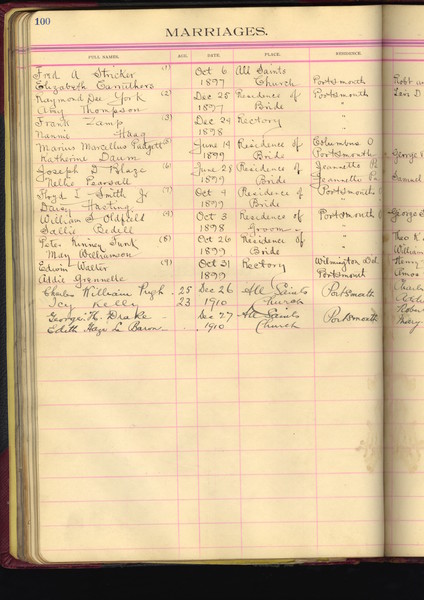 100
MARRIAGES.
FULL NAMES. AGE. DATE. PLACE. RESIDENCE.
Fred A Stricker (1) Oct 6 All Saints
Elizabeth Carruthers 1897 Church Portsmouth
Raymond Dee York (2) Dec 25 Residence of Portsmouth
Amy Thompson 1897 Bride "
Frank Zamp (3) Dec 24 Rectory "
Nannie Haag 1898 "
Marius Marcellus Padgett June 14 Residence of Columbus O
Katherine Daum 1899 Bride Portsmouth
Joseph D Blaze (6) June 28 Residence of Jeannette
Nellie Pearsall 1899 Bride Jeannette
Floyd L Smith Jr (7) Oct 4 Residence of Portsmouth
Daisy 1899 Bride "
William S Oldfield (4) Oct 3 Residence of Portsmouth
Sallie Bedell 1898 Groom "
Peter Kinney (8) Oct 26 Residence of "
May Williamson 1899 Bride "
Edwin Walter (9) Oct 31 Rectory Wilmington Del.
Addie Grennelle 1899 Portsmouth
Charles William Pugh 25 Dec 26 All Saints Portsmouth
Icy Kelly 23 1910 Church
George H. Drake Dec 27 All Saints Portsmouth
Edith Le Baron 1910 Church